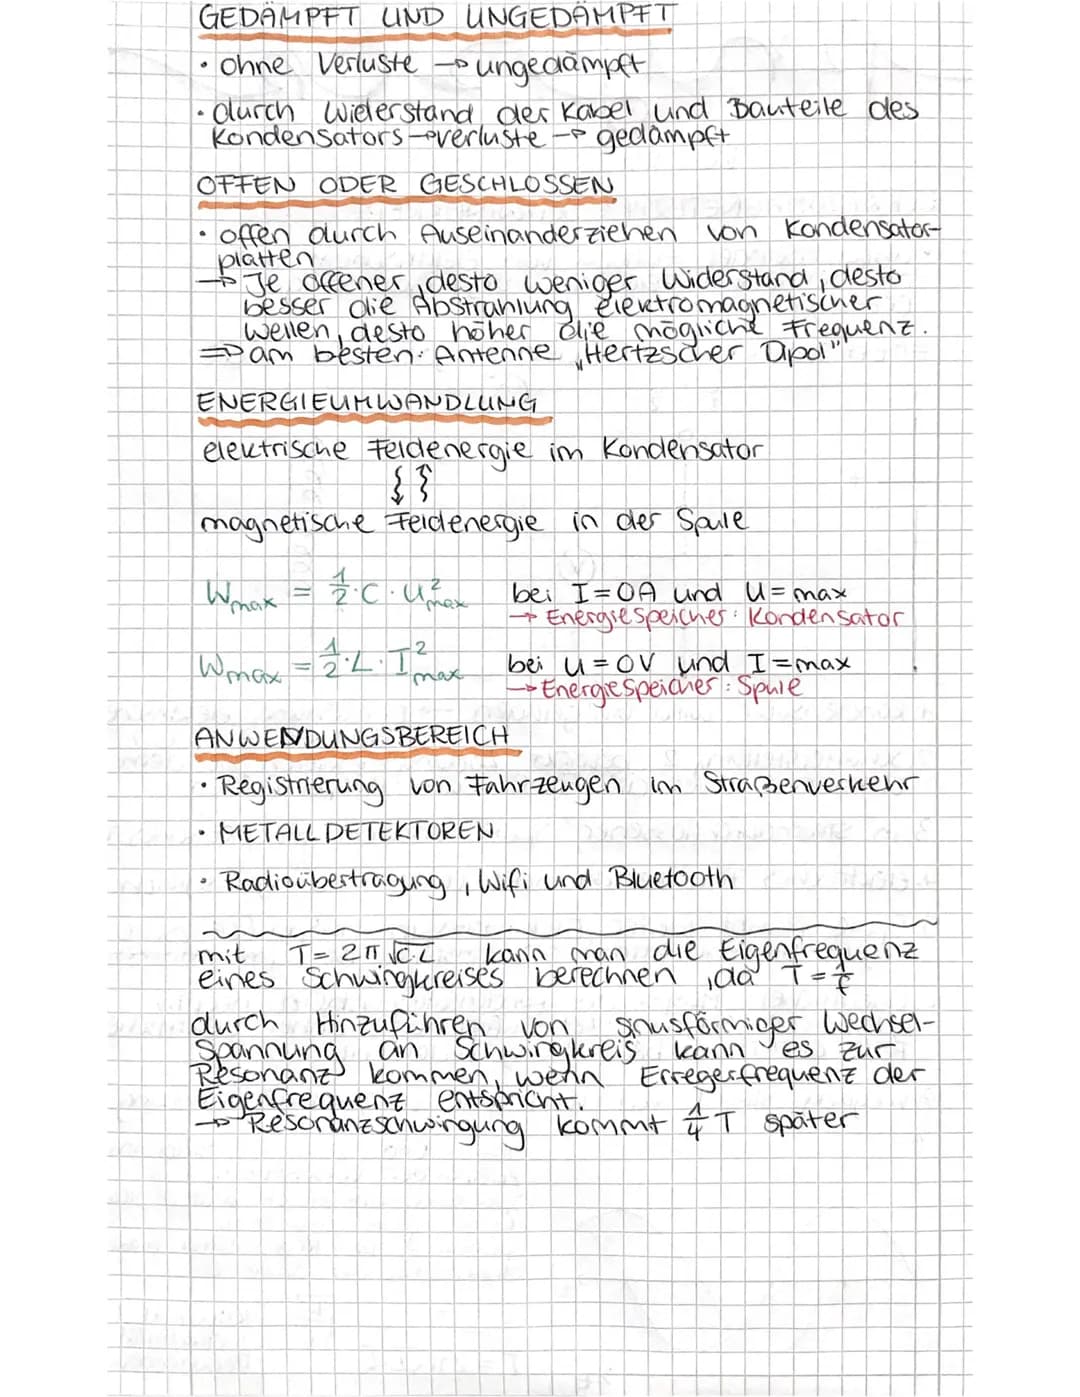 GEDÄMPFT UND UNGEDÄMPFT
• ohne Verluste → ungedämpft
• durch Widerstand der Kabel und Bauteile des
Kondensators → verluste → gedämpft
OFFEN ODER GESCHLOSSEN
• offen durch Auseinanderziehen von Kondensator-
platten
→ Je offener, desto weniger Widerstand, desto
besser die Abstrahlung elektromagnetischer
wellen, desto höher die mögliche Frequenz.
⇒ am besten: Antenne „Hertzscher Dipol"
ENERGIEUMWANDLUNG
elektrische Feldenergie im Kondensator
magnetische Feldenergie in der Spule
Wmax = 1/2 · C · U²max bei I=0A und U=max
→ Energiespeicher: Kondensator
Wmax = 1/2 · L · I²max bei U=0V und I=max
→ Energiespeicher: Spule
ANWENDUNGSBEREICH
• Registrierung von Fahrzeugen im Straßenverkehr
• METALLDETEKTOREN
• Radioübertragung, Wifi und Bluetooth
mit T= 2π √C·L kann man die Eigenfrequenz
eines Schwingkreises berechnen, da T = 1/f
durch Hinzuführen von sinusförmiger Wechsel-
Spannung an Schwingkreis kann es zur
Resonanz kommen, wenn Erregerfrequenz der
Eigenfrequenz entspricht.
→ Resonanzschwingung kommt 1/4 T später